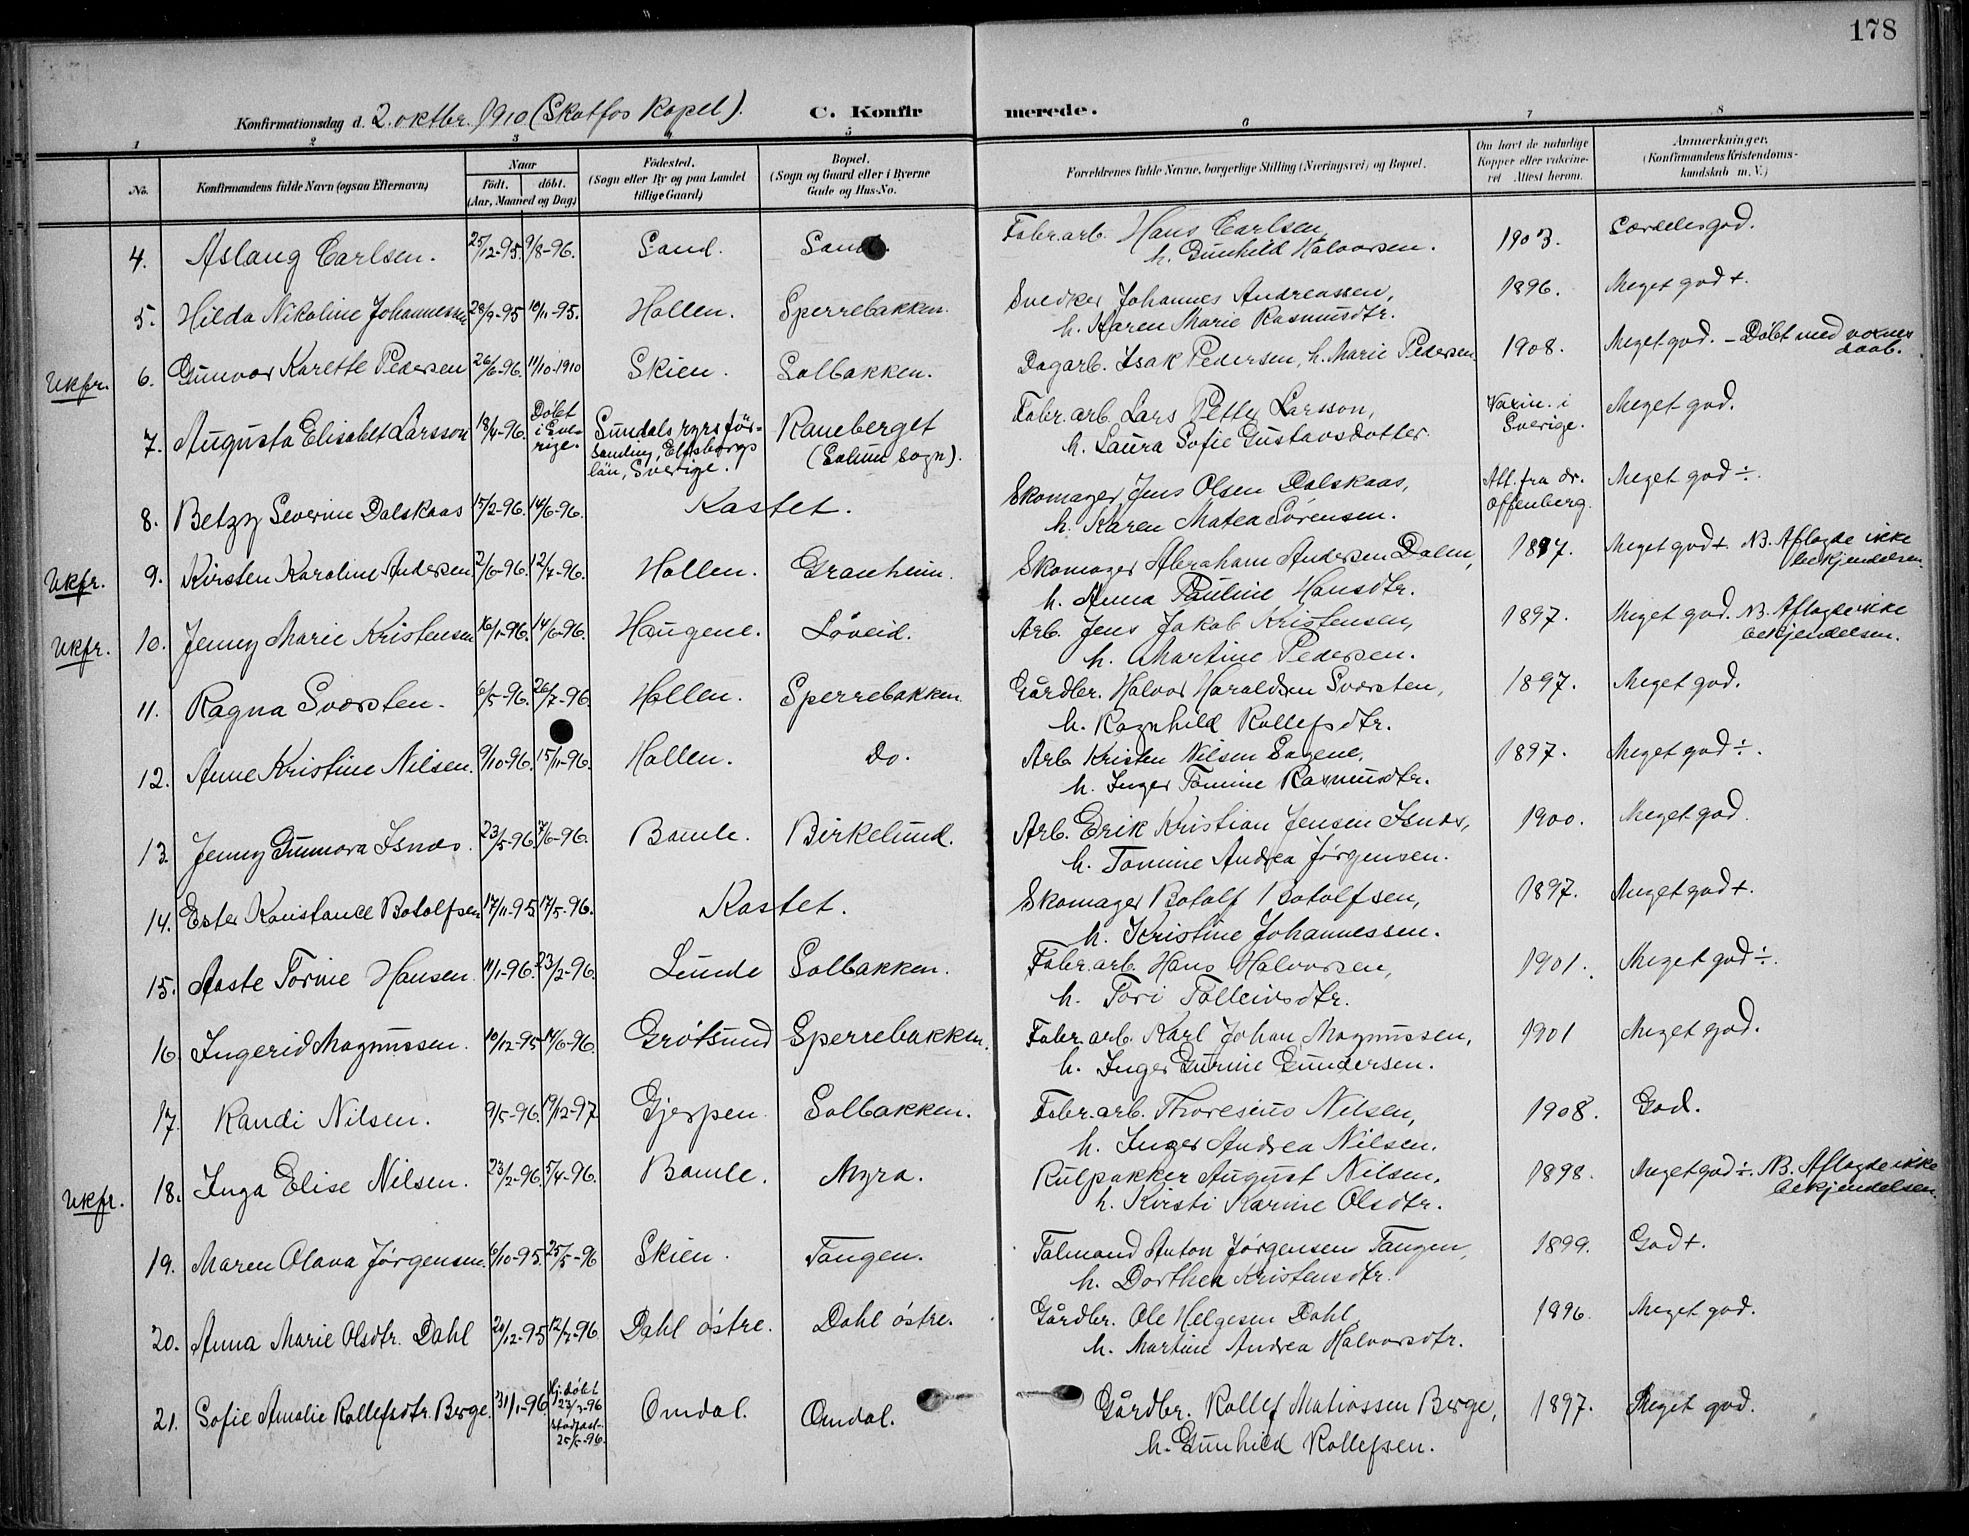 178
Konfirmationsdag d. 2. oktbr. 1910 (Skotfos Kapel). C. Konfirmerede.
1 2 3 4 5 6 7 8
No. Konfirmandens fulde Navn (ogsaa Efternavn) Naar født. døbt. (Aar, Maaned og Dag) Fødested. (Sogn eller By og paa Landet tillige Gaard) Bopæl. (Sogn og Gaard eller i Byerne Gade og Hus-No. Forældrenes fulde Navne, borgerlige Stilling (Næringsvei) og Bopæl. Om havt de naturlige Kopper eller vakcineret Attest herom. Anmærkninger. (Konfirmandens Kristendomskundskab m. V.)
4. Aslaug Carlsen. 25/12-95. 9/8-96. Sand. Sand. Fabr.arb. Hans Carlsen, 1903. Særdeles god.
h. Gunhild Halvorsen.
5. Hilda Nikoline Johannessen 28/9-95 10/11-95. Hollen. Sperrebakken. Snedker Johannes Andreassen, 1896. Meget god +.
h. Karen Marie Rasmusdtr.
Ukfr. 6. Gunvor Karette Pedersen 26/6-96. 11/10-1910 Skien. Solbakken. Dagarb. Isak Pedersen, h. Marie Pedersen 1908. Meget god. - Døbt med voxnes
daab.
7. Augusta Elisabet Larsson 18/4-96. Døbt i Sverige. Sundals ryrs för-
samling, Elfsborgs
län, Sverige. Raneberget
(Solum sogn). Fabr.arb. Lars Petter Larsson, Vaxin. i
Sverige. Meget god.
h. Laura Sofie Gustavsdotter.
8. Betzy Severine Dalskaas 15/2-96. 14/6-96. Kastet. Skomager Jens Olsen Dalskaas, Att. fra dr.
Offenberg. Meget god ÷.
h. Karen Matea Sørensen.
Ukfr. 9. Kirsten Karoline Andersen 2/6-96. 12/7-96. Hollen. Granheim. Skomager Abraham Andersen Dalen, 1897. Meget god +. NB. Aflagde ikke
bekjendelsen.
h. Anna Pauline Hansdtr.
Ukfr. 10. Jenny Marie Kristensen 16/1-96. 14/6-96. Haugene. Løveid. Arb. Jens Jakob Kristensen, 1897. Meget god. NB. Aflagde ikke
bekjendelsen.
h. Martine Pedersen.
11. Ragna Sværsten. 6/5-96. 26/7-96. Hollen. Sperrebakken. Gårdbr. Halvor Haraldsen Sværsten, 1897. Meget god.
h. Ragnhild Rollefsdtr.
12. Anne Kristine Nilsen. 9/10-96. 15/11-96. Hollen. Do. Arb. Kristen Nilsen Sagene, 1897. Meget god ÷.
h. Inger Tomine Rasmusdtr.
13. Jenny Gunnora Isnæs. 23/5-96. 7/6-96. Bamle. Birkelund. Arb. Erik Kristian Jensen Isnæs, 1900. Meget god.
h. Tomine Andrea Jørgensen.
14. Ester Konstance Botolfsen 17/11-95 17/5-96. Kastet. Skomager Botolf Botolfsen, 1897. Meget god +.
h. Kristine Johannessen.
15. Aaste Torine Hansen. 11/1-96. 23/2-96. Lunde Solbakken. Fabr.arb. Hans Halvorsen, 1901. Meget god ÷.
h. Tori Tolleivsdtr.
16. Ingerid Magnussen. 10/12-95 14/6-96. Grøtsund Sperrebakken. Fabr.arb. Karl Johan Magnussen, 1901 Meget god.
h. Inger Gurine Gundersen.
17. Randi Nilsen. 9/5-96. 19/12-97 Gjerpen. Solbakken. Fabr.arb. Thoresius Nilsen, 1908. God.
h. Inger Andrea Nilsen.
Ukfr. 18. Inga Elise Nilsen. 23/2-96. 5/4-96. Bamle. Myra. Rulpakker August Nilsen, 1898. Meget god ÷. NB. Aflagde ikke
bekjendelsen.
h. Kirsti Karine Olsdtr.
19. Maren Olava Jørgensen. 6/10-95. 25/5-96 Skien. Tangen. Talmand Anton Jørgensen Tangen, 1899. God +.
h. Dorthea Kristensdtr.
20. Anna Marie Olsdtr. Dahl 20/12-95 12/7-96. Dahl østre. Dahl østre. Gårdbr. Ole Helgesen Dahl, 1896. Meget god.
h. Martine Andrea Halvorsdtr.
21. Sofie Amalie Rollefsdtr. Berge. 31/1-96. Hj. døbt
23/3-96
stadfæst.
25/5-96. Omdal. Omdal. Gårdbr. Rollef Matiassen Berge, 1897. Meget god.
h. Gunhild Rollefsen.